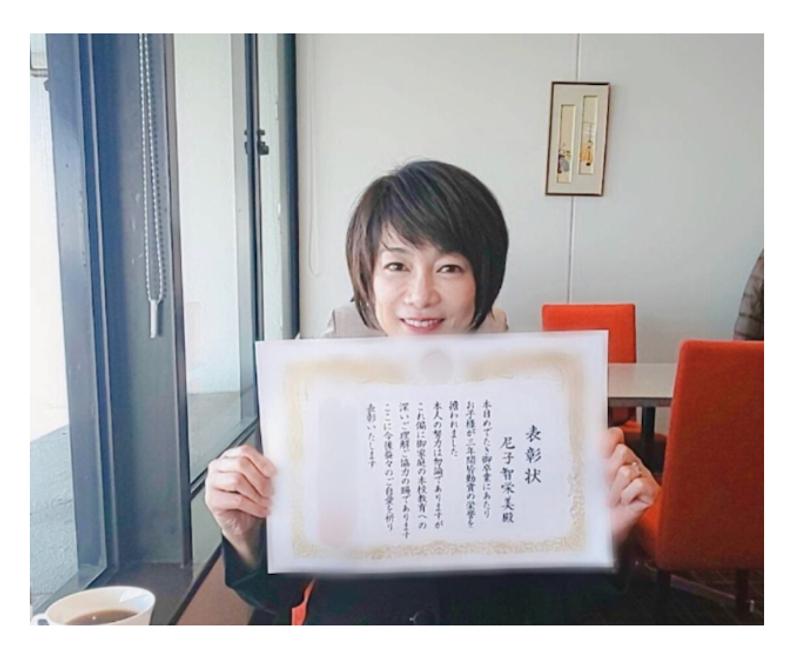 表彰状
尼子智栄美殿
本日めでたき御卒業にあたり
お子様が三年間皆勤賞の栄誉を
擔われました
本人の努力は勿論でありますが
これ偏に御家庭の本校教育への
深いご理解ご協力の賜であります
ここに今後益々のご自愛を祈り
表彰いたします